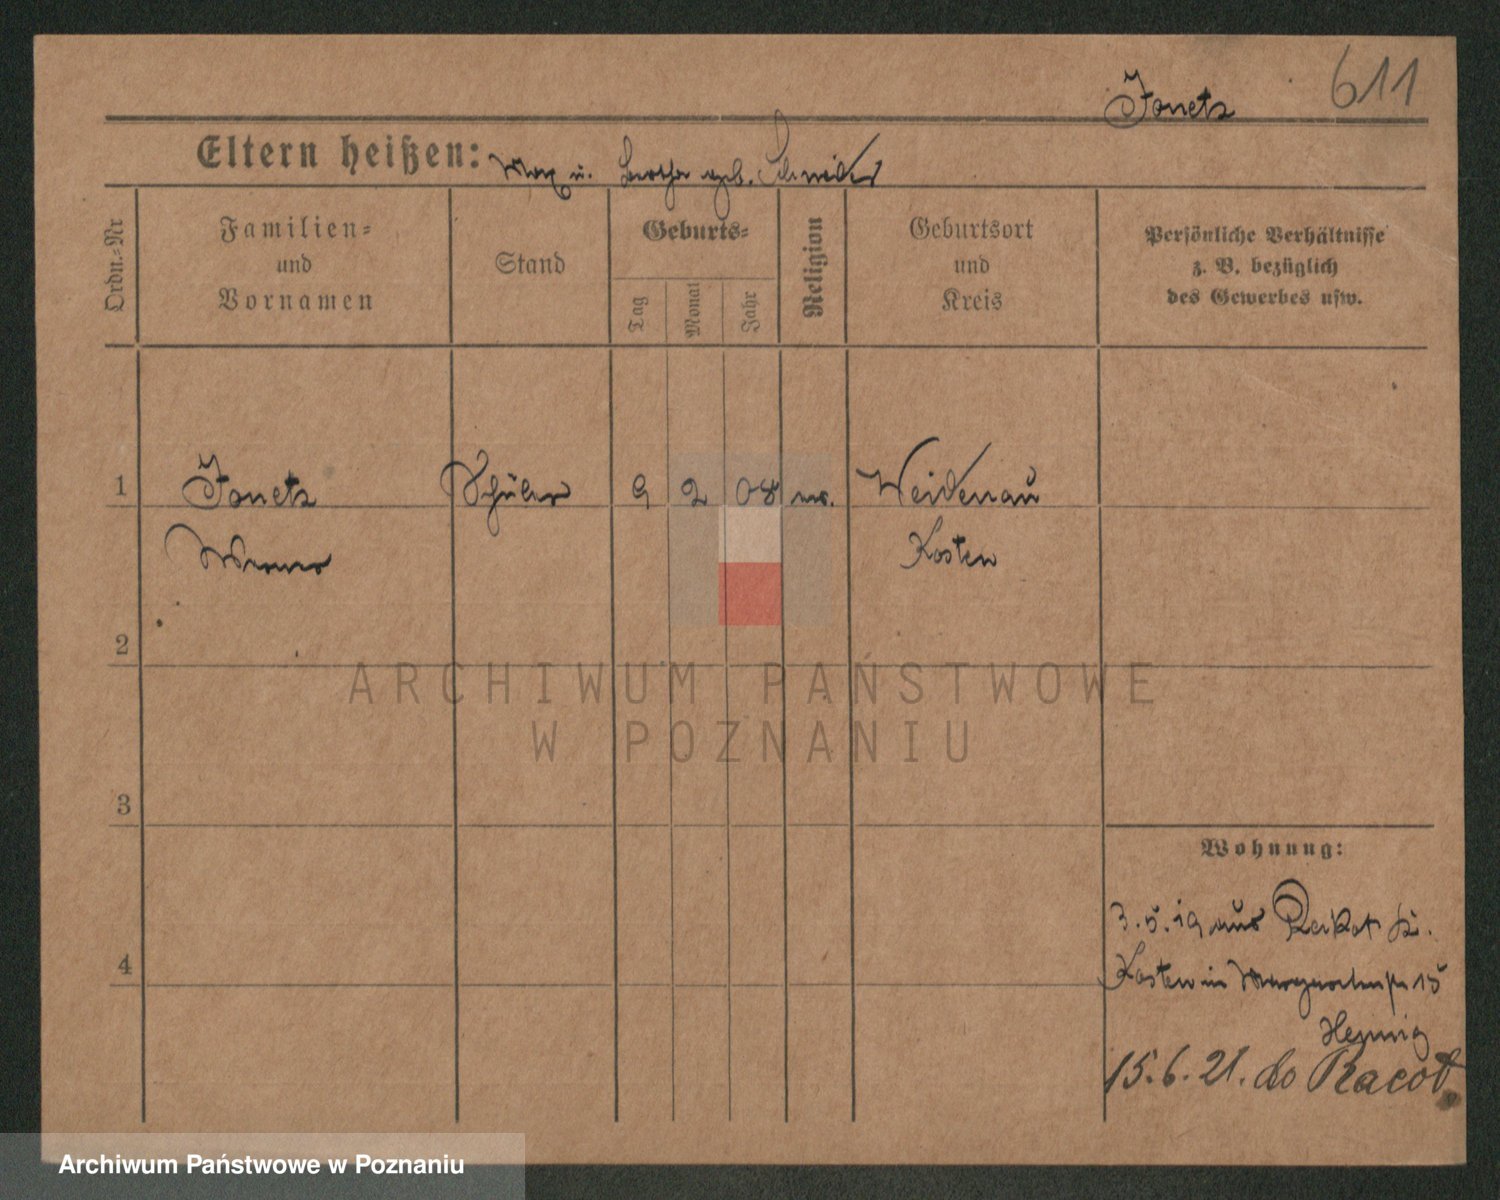 611
Jonetz
Eltern heißen: Max u. Bertha geb. Schneider
Ordn.-Nr
Familien-
und
Vornamen
Stand
Geburts-
Tag
Monat
Jahr
Religion
Geburtsort
und
Kreis
Persönliche Verhältnisse
z. B. bezüglich
des Gewerbes usw.
1
Jonetz
Schüler
9
2
08
Weidenau
Werner
Kosten
2
ARCHIWUM PAŃSTWOWE
W POZNANIU
3
Wohnung:
3.5.19 aus Rackot Kr.
4
Kosten in 15
Hennig
15.6.21. do Racot
Archiwum Państwowe w Poznaniu